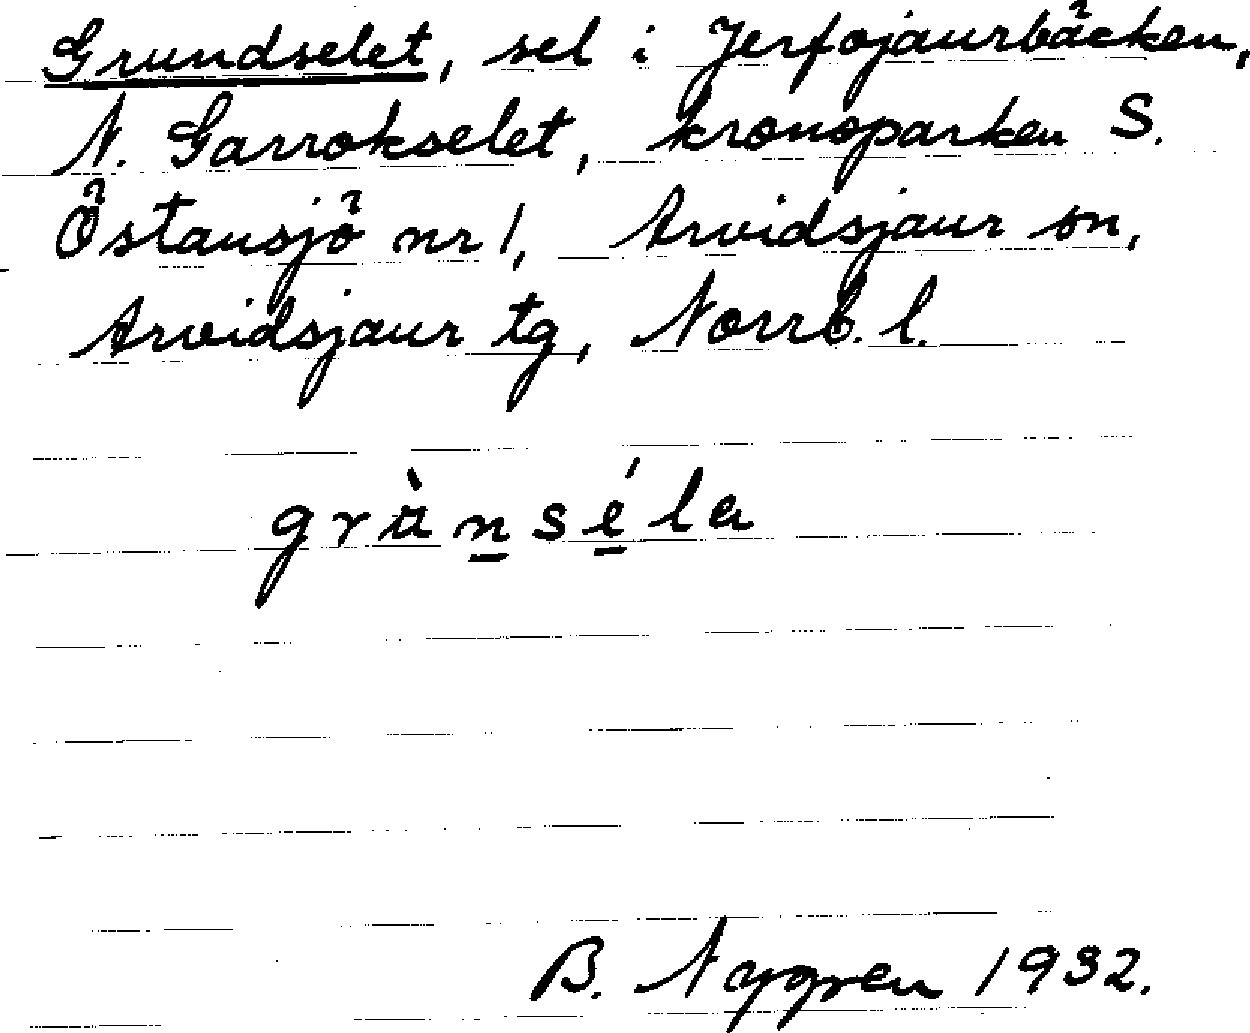 Grundselet, sel i Jerfojaurbäcken,
N. Garrokselet, kronoparken S.
Östansjö nr 1, Arvidsjaur sn,
Arvidsjaur tg, Norrb. l.
grànséla
B. Nygren 1932.